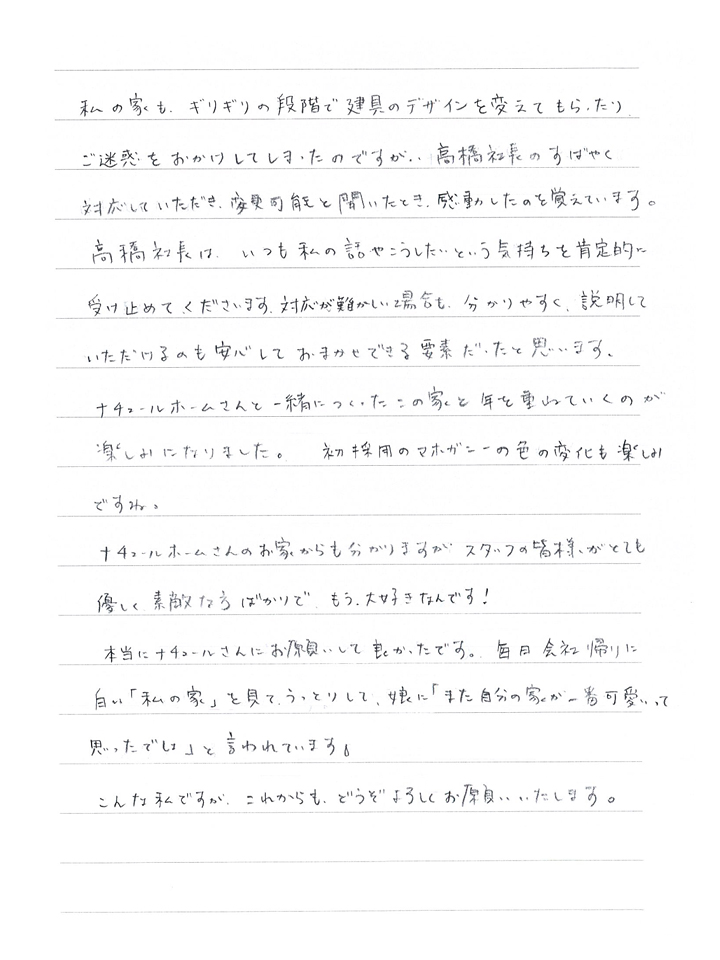 私の家も、ギリギリの段階で建具のデザインを変えてもらったり
ご迷惑をおかけしてしまったのですが、、高橋社長のすばやく
対応していただき、変更可能と聞いたとき、感動したのを覚えています。
高橋社長は、いつも私の話やこうしたいという気持ちを肯定的に
受け止めてくださいます。対応が難かしい場合も、分かりやすく、説明して
いただけるのも安心しておまかせできる要素だったと思います。
ナチュールホームさんと一緒につくったこの家と年を重ねていくのが
楽しみになりました。 初採用のマホガニーの色の変化も楽しみ
ですね。
ナチュールホームさんのお家からも分かりますが スタッフの皆様がとても
優しく、素敵な方ばかりで、もう、大好きなんです!
本当にナチュールさんにお願いして良かったです。毎日 会社帰りに
白い「私の家」を見て、うっとりして、娘に「また自分の家が一番可愛いって
思ったでしょ」と言われています。
こんな私ですが、これからも、どうぞよろしくお願いいたします。